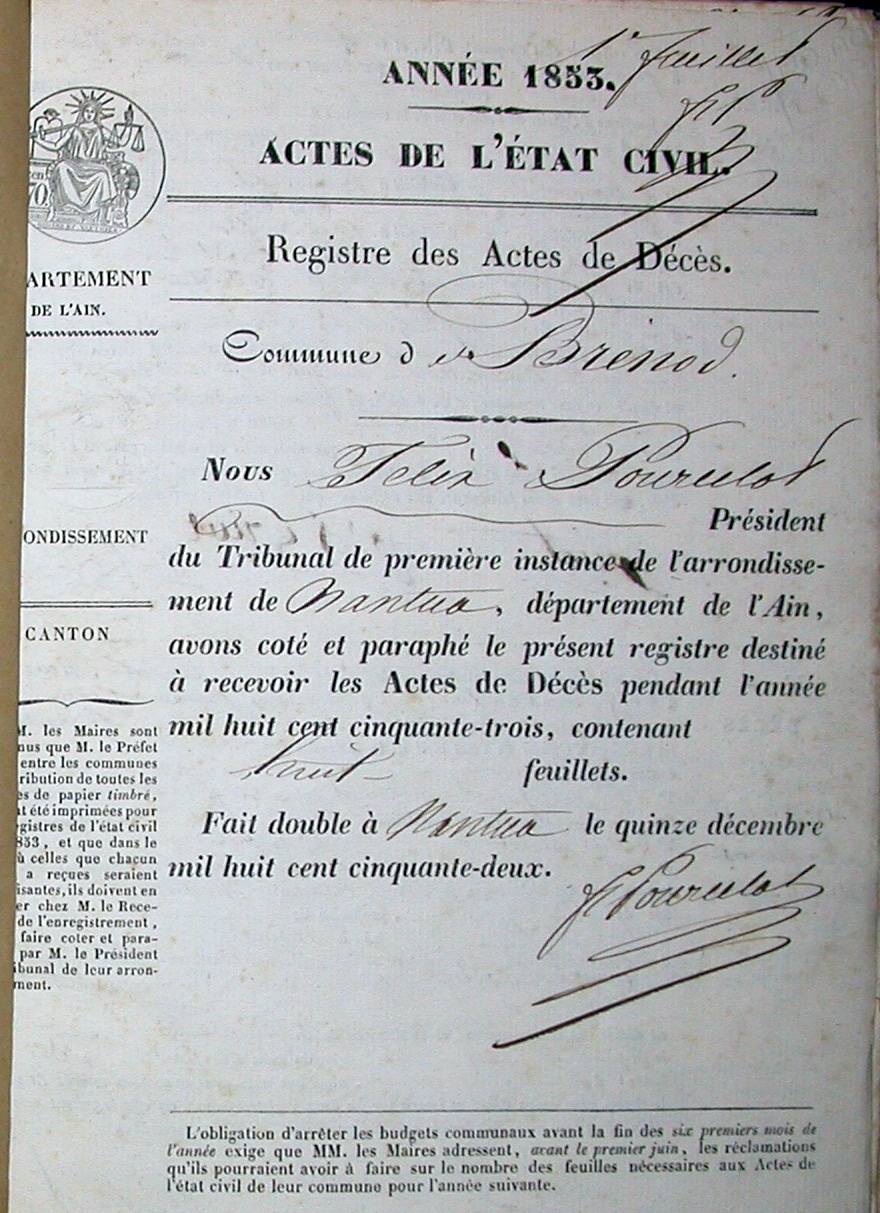 1er feuillet
ANNÉE 1853.
ACTES DE L'ÉTAT CIVIL.
Registre des Actes de Décès.
Commune de Brénod.
Nous Félix Pourcelot
Président
du Tribunal de première instance de l'arrondisse-
ment de Nantua, département de l'Ain,
avons coté et paraphé le présent registre destiné
à recevoir les Actes de Décès pendant l'année
mil huit cent cinquante-trois, contenant
huit feuillets.
Fait double à Nantua le quinze décembre
mil huit cent cinquante-deux.
F Pourcelot
L'obligation d'arrêter les budgets communaux avant la fin des six premiers mois de
l'année exige que MM. les Maires adressent, avant le premier juin, les réclamations
qu'ils pourraient avoir à faire sur le nombre des feuilles nécessaires aux Actes de
l'état civil de leur commune pour l'année suivante.
70
ARTEMENT
DE L'AIN.
ONDISSEMENT
CANTON
M. les Maires sont
nus que M. le Préfet
entre les communes
ribution de toutes les
es de papier timbré,
nt été imprimées pour
gistres de l'état civil
853, et que dans le
ù celles que chacun
a reçues seraient
isantes, ils doivent en
er chez M. le Rece-
de l'enregistrement,
faire coter et para-
par M. le Président
ibunal de leur arron-
ment.